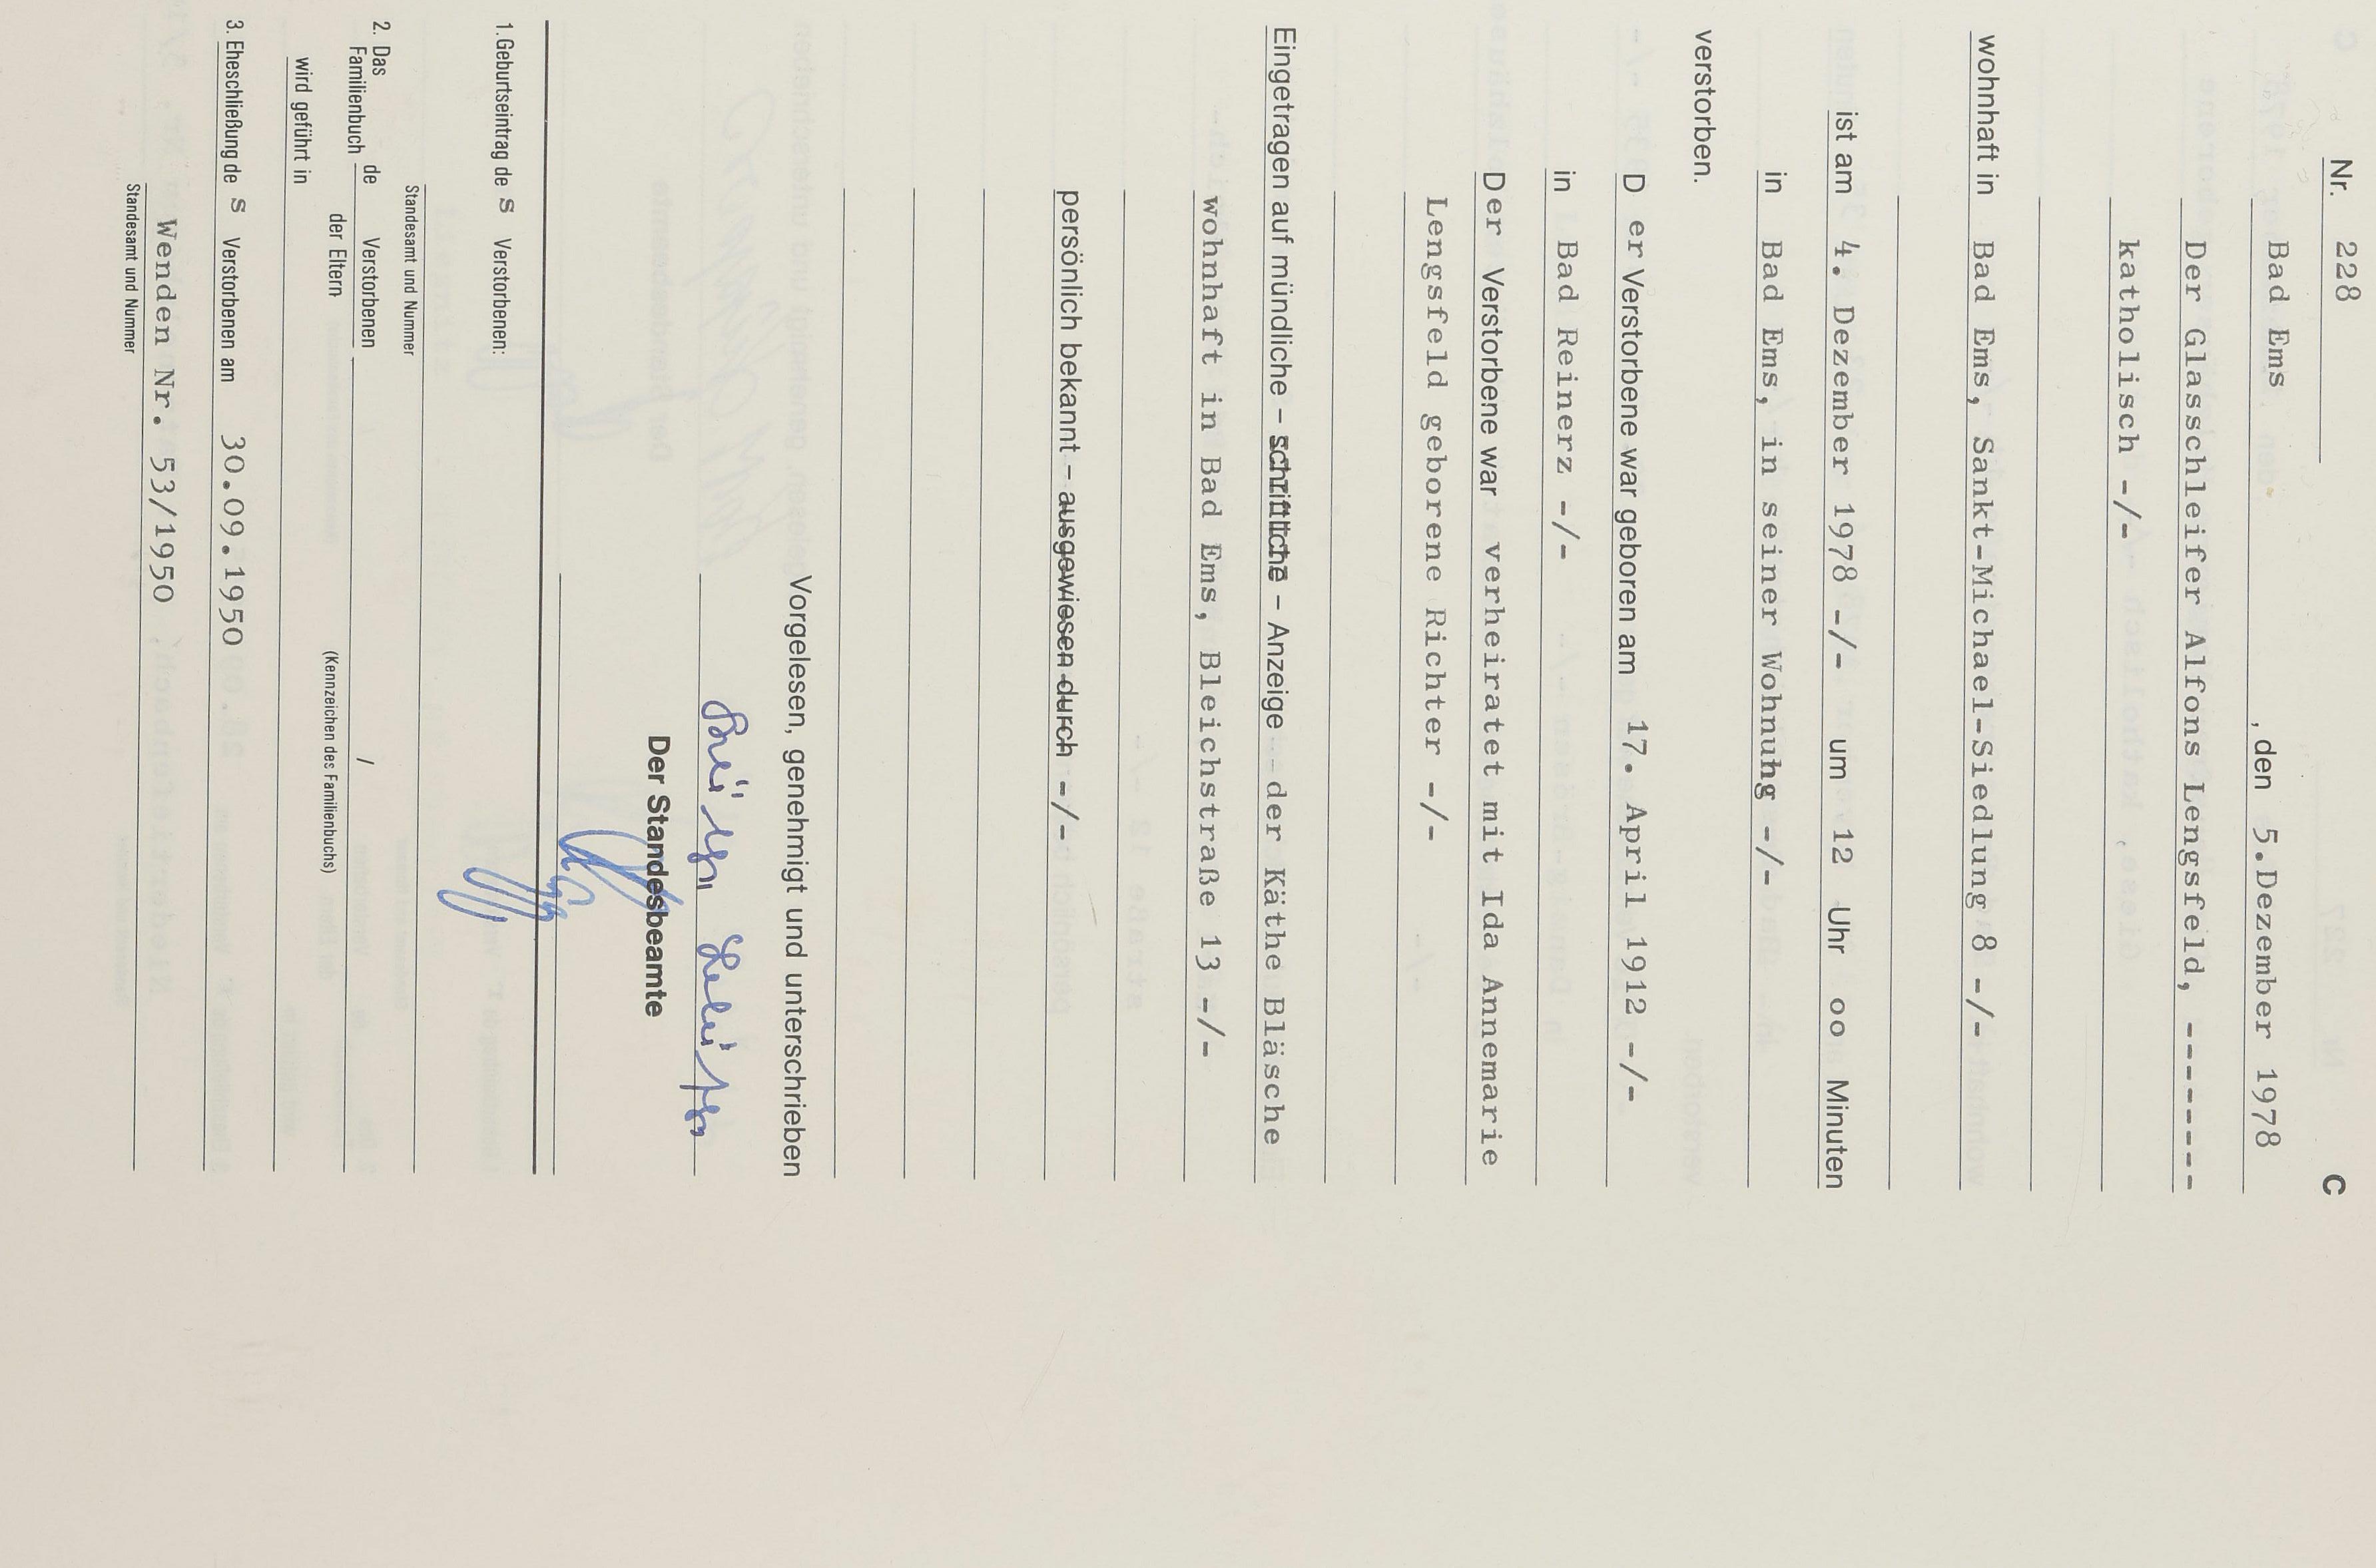 Nr. 228 C
Bad Ems, den 5.Dezember 1978
Der Glasschleifer Alfons Lengsfeld, --------
katholisch -/-
wohnhaft in Bad Ems, Sankt-Michael-Siedlung 8 -/-
ist am 4. Dezember 1978 -/- um 12 Uhr oo Minuten
in Bad Ems, in seiner Wohnuhg -/-
verstorben.
D er Verstorbene war geboren am 17. April 1912 -/-
in Bad Reinerz -/-
Der Verstorbene war verheiratet mit Ida Annemarie
Lengsfeld geborene Richter -/-
Eingetragen auf mündliche – schriftliche – Anzeige der Käthe Bläsche
wohnhaft in Bad Ems, Bleichstraße 13 -/-
persönlich bekannt – ausgewiesen durch -/-
Vorgelesen, genehmigt und unterschrieben
Der Standesbeamte
1. Geburtseintrag de s Verstorbenen:
Standesamt und Nummer
2. Das Familienbuch de Verstorbenen /
der Eltern (Kennzeichen des Familienbuchs)
wird geführt in
3. Eheschließung de s Verstorbenen am 30.09.1950
Wenden Nr. 53/1950
Standesamt und Nummer